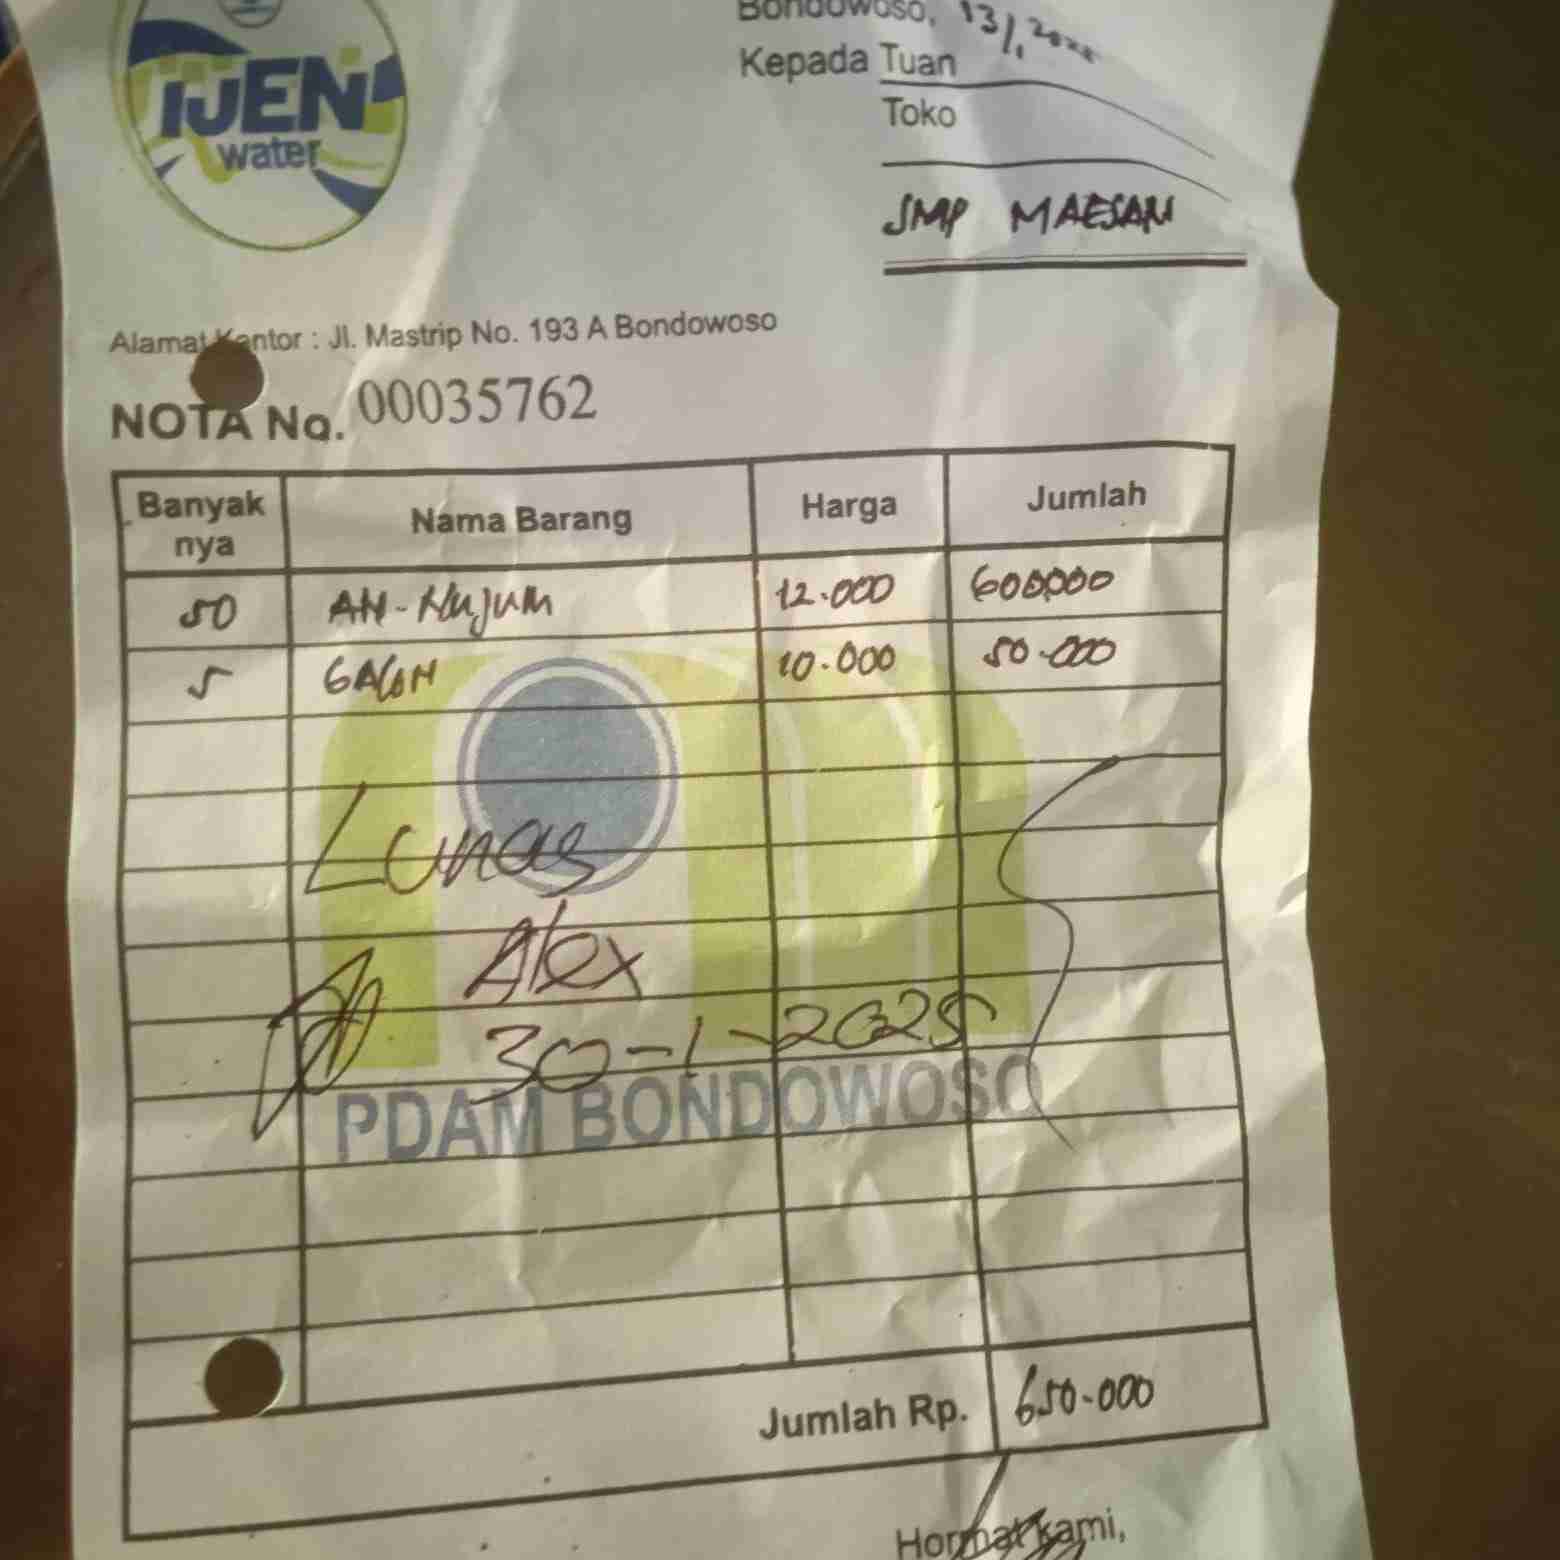 IJEN
water
Bondowoso, 13/1 2025
Kepada Tuan
Toko
SMP MAESAN
Alamat Kantor : Jl. Mastrip No. 193 A Bondowoso
NOTA No. 00035762
Banyak nya Nama Barang Harga Jumlah
50 AN-Nujum 12.000 600.000
5 GALON 10.000 50.000
Lunas
Alex
30-1-2025
PDAM BONDOWOSO
Jumlah Rp. 650.000
Hormat kami,